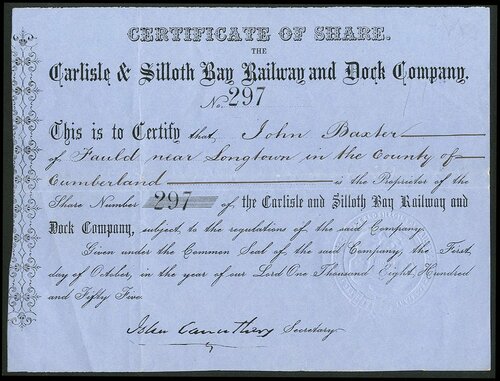 CERTIFICATE OF SHARE.
THE
Carlisle & Silloth Bay Railway and Dock Company.
No. 297
This is to Certify that, John Baxter
of Fauld near Longtown in the County of
Cumberland is the Proprietor of the
Share Number 297 of, the Carlisle and Silloth Bay Railway and
Dock Company, subject to the regulations of the said Company.
Given under the Common Seal of the said Company, the First,
day of October, in the year of our Lord One Thousand Eight Hundred
and Fifty Five.
John Carruthers Secretary.